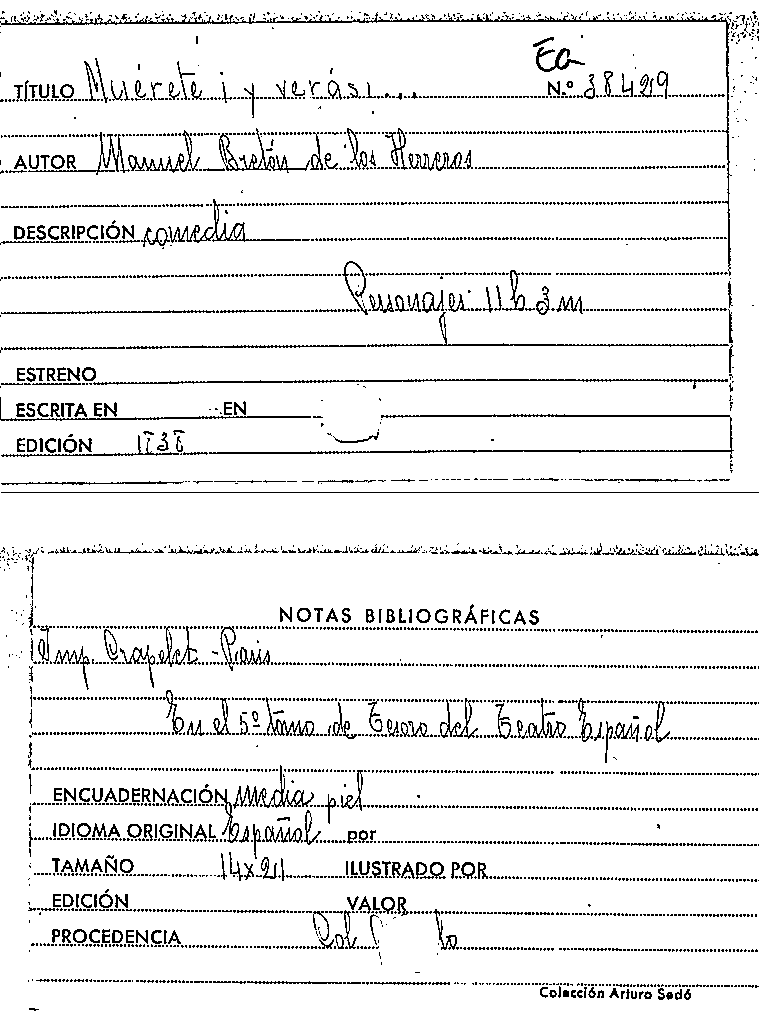 Ea
TÍTULO Muérete ¡ y verás! ... N.º 38429
AUTOR Manuel Bretón de los Herreros
DESCRIPCIÓN comedia
Personajes 11 h 3 m
ESTRENO
ESCRITA EN EN
EDICIÓN 1838
NOTAS BIBLIOGRÁFICAS
Imp. Crapelet - Paris
En el 5º tomo de Tesoro del Teatro Español
ENCUADERNACIÓN media piel
IDIOMA ORIGINAL Español por
TAMAÑO 14x21 ILUSTRADO POR
EDICIÓN VALOR
PROCEDENCIA Col
Colección Arturo Sedó